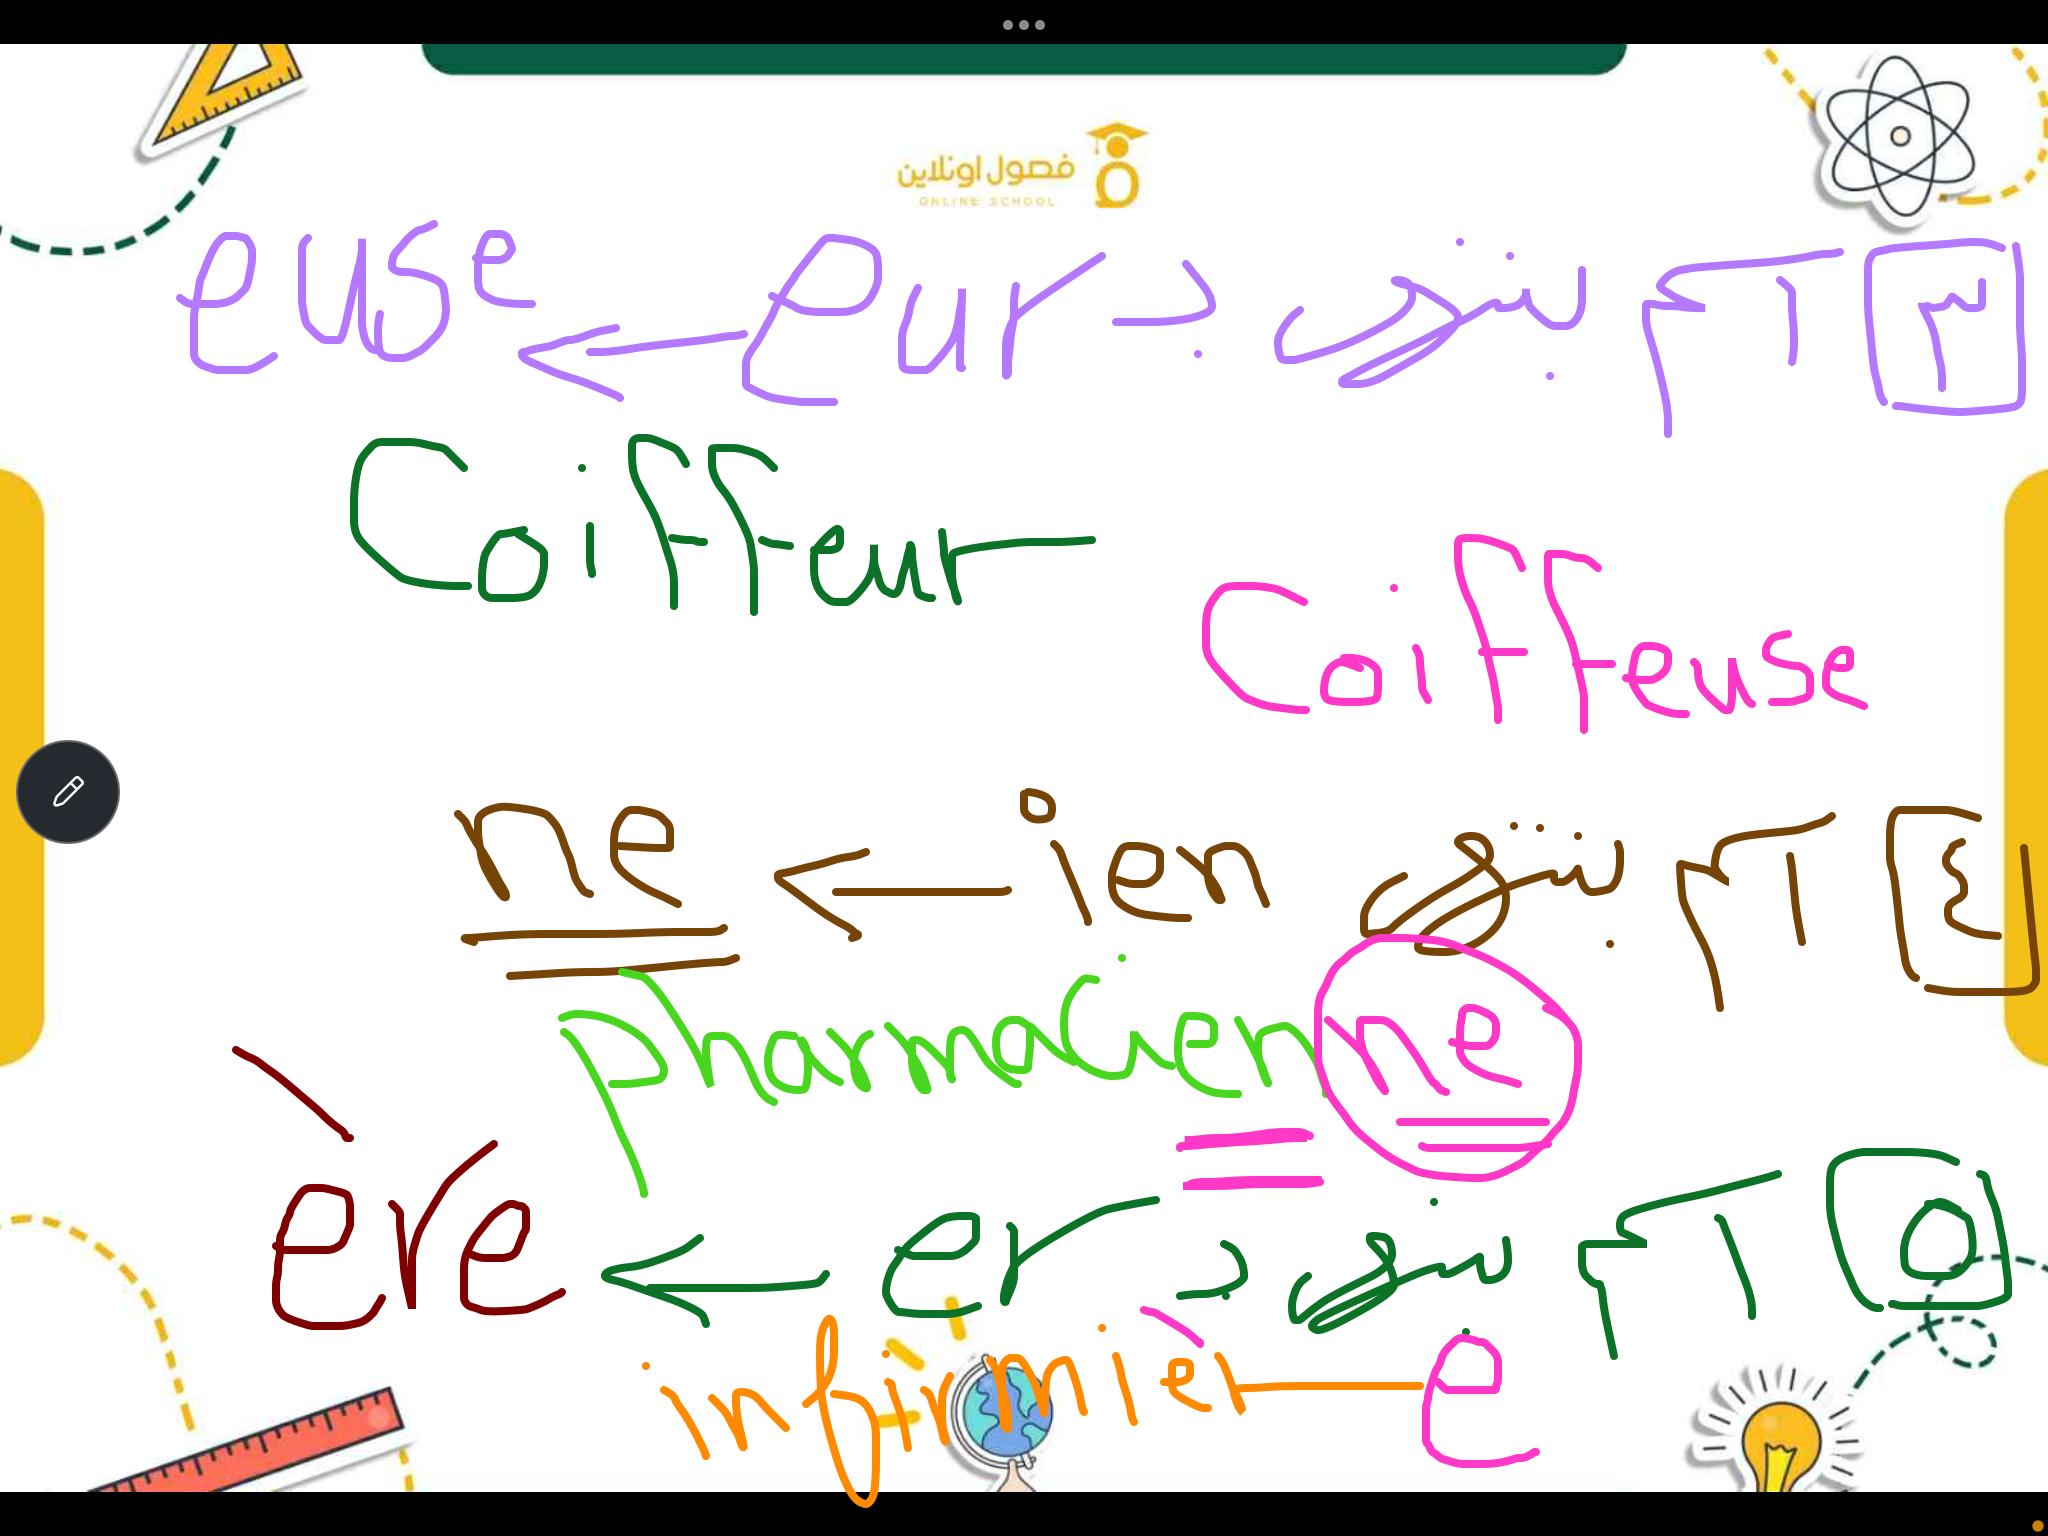 فصول اونلاين
ONLINE SCHOOL
٣ لم بنتهي بـ eur ← euse
Coiffeur
Coiffeuse
٤ لم بنتهي ien ← ne
pharmacienne
٥ لم بنتهي بـ er ← ère
infirmière